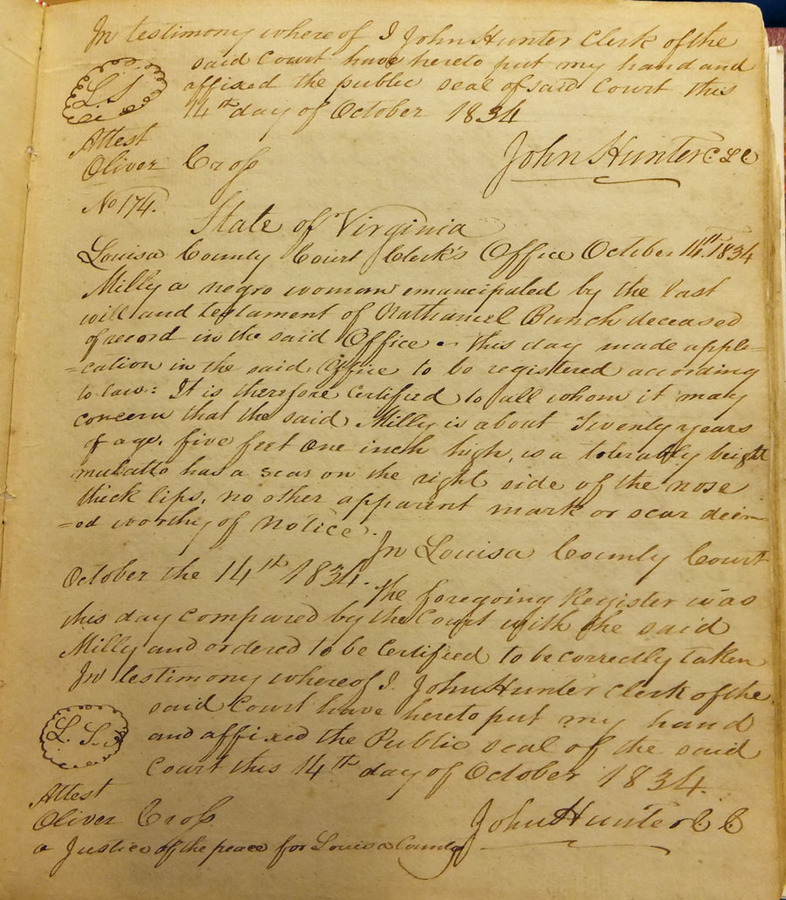 In testimony where of I John Hunter Clerk of the
said Court have hereto put my hand and
L.S. affixed the public seal of said Court this
14th day of October 1834
Attest
Oliver Cross John Hunter C L C
No 174.
State of Virginia
Louisa County Court Clerk's Office October 14th 1834
Milly a negro woman emancipated by the last
will and testament of Nathaniel Bunch deceased
of record in the said Office this day made appli=
=cation in the said Office to be registered according
to law: It is therefore Certified to all whom it may
concern that the said Milly is about Twenty years
of age, five feet One inch high, is a tolerably bright
mulatto has a scar on the right side of the nose
thick lips, no other apparent mark or scar deem
=ed worthy of notice.
In Louisa County Court
October the 14th 1834.
The foregoing Register was
this day compared by the Court with the said
Milly and ordered to be Certified to be correctly taken
In testimony whereof I. John Hunter Clerk of the
said Court have hereto put my hand
L. S. and affixed the Public seal of the said
Court this 14th day of October 1834.
Attest
Oliver Cross John Hunter C C
a Justice of the peace for Louisa County